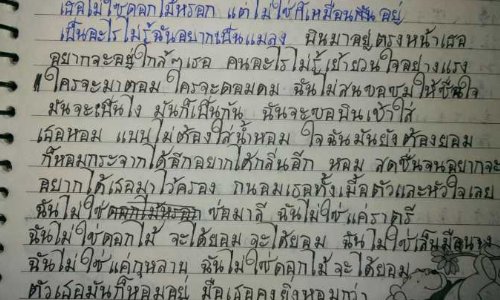 เธอไม่ใช่ดอกไม้หรอก แต่ไม่ใช่ก็เหมือนกันอยู่
เป็นอะไรไม่รู้ฉันอยากเป็นแมลง บินมาอยู่ตรงหน้าเธอ
อยากจะอยู่ใกล้ๆเธอ คนอะไรไม่รู้เย้ายวนใจอย่างแรง
ใครจะมาตอม ใครจะดอมดม ฉันไม่สนขอชมให้ชื่นใจ
มันจะเป็นไง มันก็เป็นกัน ฉันจะขอบินเข้าใส่
เธอหอม แบบไม่ต้องใส่น้ำหอม ใจฉันมันยังต้องยอม
ก็หอมกระจากได้อีกอยากได้กลิ่นอีก หอม สดชื่นจนอยากจะ
อยากได้เธอมาไว้ครอง ถนอมเธอทั้งเนื้อตัวและหัวใจเลย
ฉันไม่ใช่ดอกไม้หรอก ช่อมาลี ฉันไม่ใช่แค่ราตรี
ฉันไม่ใช่ดอกไม้ จะได้ยอม จะได้ยอม ฉันไม่ใช่
ฉันไม่ใช่แค่กุหลาบ ฉันไม่ใช่ดอกไม้ จะได้ยอม
ตัวเธอมันก็หอมอยู่ มือเธอคงยิ่งหอมกว่า